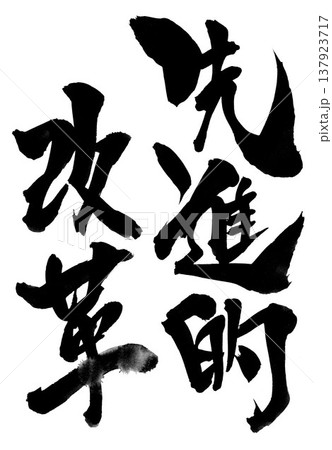 先進的
改革
pixta.jp - 137923717